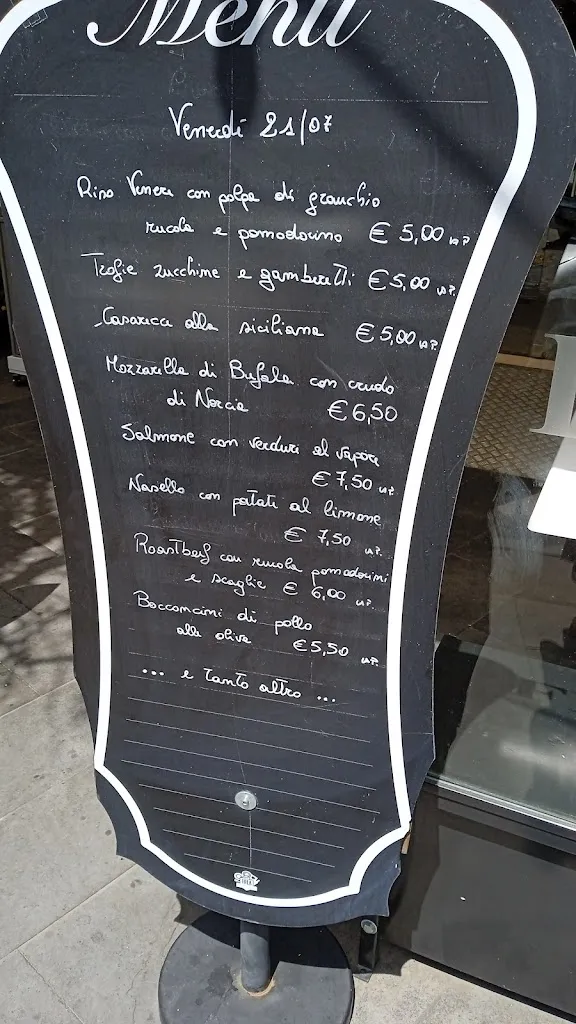 Menu
Venerdì 21/07
Riso Venere con polpa di granchio
rucola e pomodorino € 5,00 la P.
Trofie zucchine e gamberetti € 5,00 la P.
Casareca alla siciliana € 5,00 la P.
Mozzarella di Bufala con crudo
di Norcia € 6,50
Salmone con verduri al vapore
€ 7,50 la P.
Nasello con patati al limone
€ 7,50 la P.
Roastbeef con rucola pomodorini
e scaglie € 6,00 la P.
Bocconcini di pollo
alle olive € 5,50 la P.
... e tanto altro ...